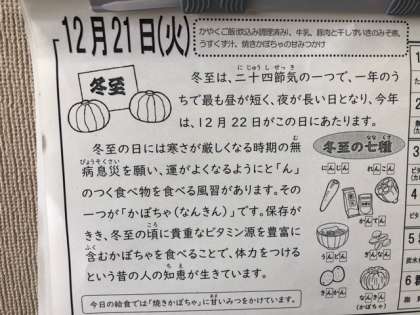 12月21日(火)
かやくご飯(炊込み調理済み)、牛乳、豚肉と干しずいきのみそ煮、
うすくず汁、焼きかぼちゃの甘みつかけ
冬至
冬至は、二十四節気の一つで、一年のう
ちで最も昼が短く、夜が長い日となり、今年
は、12月22日がこの日にあたります。
冬至の日には寒さが厳しくなる時期の無
病息災を願い、運がよくなるようにと「ん」
のつく食べ物を食べる風習があります。その
一つが「かぼちゃ(なんきん)」です。保存が
きき、冬至の頃に貴重なビタミン源を豊富に
含むかぼちゃを食べることで、体力をつける
という昔の人の知恵が生きています。
冬至の七種
にんじん
れんこん
うどん
ぎんなん
きんかん
なんきん
今日の給食では「焼きかぼちゃ」に甘いみつをかけています。